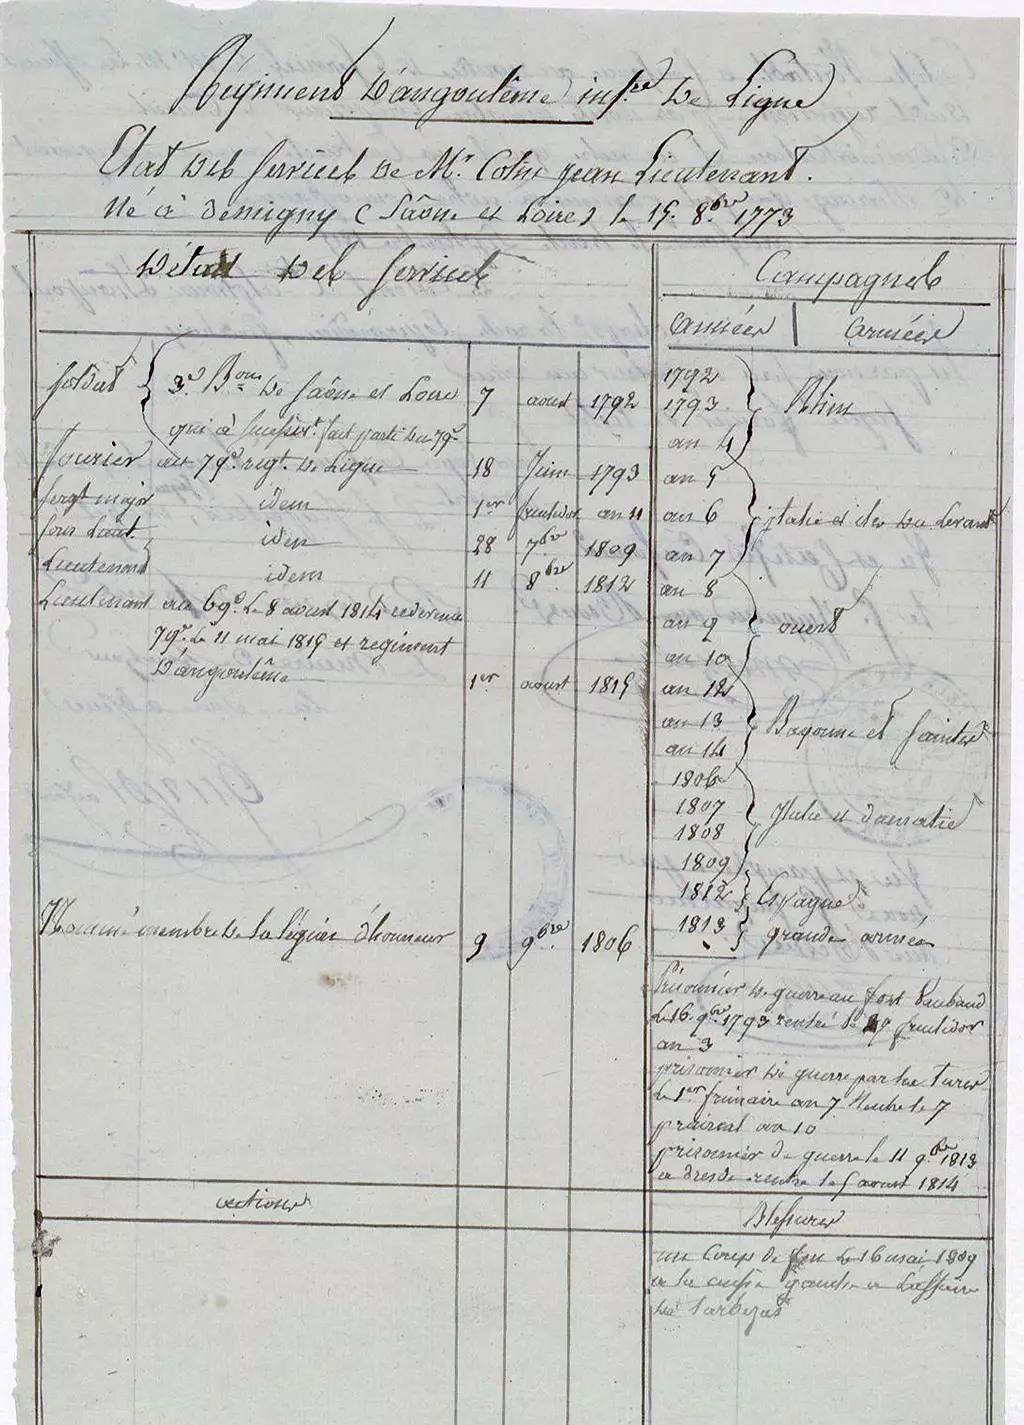 Régiment D'angoulême inf.rie De Ligne
Etat Des Services De Mr. Colin Jean Lieutenant.
Né à Demigny (Saône et Loire) le 15. 8.bre 1773
Détail Des Services
Campagnes
années | armées
Soldat { 3.e B.on De Saône et Loire 7 aoust 1792
qui à fait parti Du 79.e
fourier au 79.e regt. De Ligne 18 Juin 1793
Sergt major idem 1er fructidor an 11
Sous Lieut. idem 28 7bre 1809
Lieutenant idem 11 8bre 1812
Lieutenant au 69.e Le 8 aoust 1814 redevenu
79.e Le 11 mai 1815 et regiment
D'angoulême 1er aoust 1815
Nommé membre De la légion d'honneur 9 9bre 1806
1792
1793
an 4
Rhin
an 5
an 6
an 7
italie et iles Du Levant
an 8
an 9
an 10
ouest
an 12
an 13
an 14
Bayonne et Saintes
1806
1807
1808
1809
Italie et damatie
1812
Espagne
1813
grande armée
Prisonnier De guerre au fort Vaubaud
Le 16. 9bre 1793 rentré le 29 fructidor
an 3
prisonnier De guerre par les turcs
Le 1er frimaire an 7 Rentré le 7
prairial an 10
prisonnier de guerre le 11 9.bre 1813
a dresde rentré le 5 aoust 1814
actions
Blessures
un Coup De feu Le 16 mai 1809
a la cuisse gauche a L'affaire
De